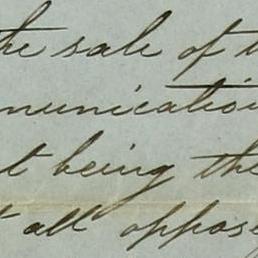 the sale of t
munication
t being the
t all oppose